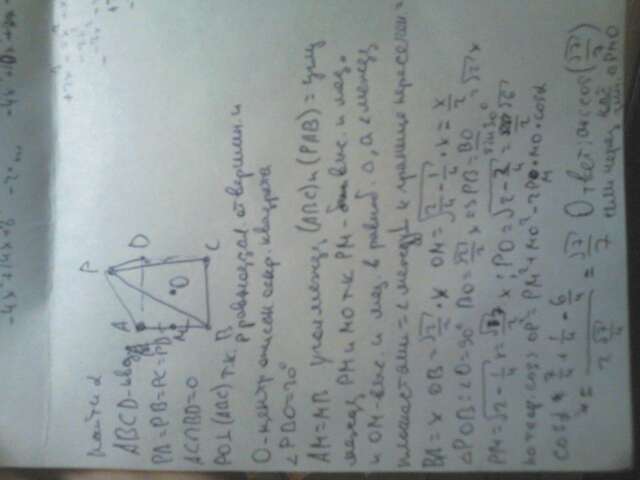 -4x² + 14x + 6
Найти α
P
ABCD - квадр
A
D
PA=PB=PC=PD
M
O
AC∩BD=O
B
C
PO⊥(ABC) т.к.
P равноудал. от вершин и
O - центр описан окр. квадрата
∠PBO=30°
AM=MB угол между (ABC) и (PAB) = углу
между PM и MO т.к. PM - выс. и мед.
и OM - выс. и мед. в равноб. Δ, а ∠ между
плоскостями = ∠ между ⊥ к границе пересечен =
BA = x OB = √2/2 · x OM = √(2/4 - 1/4) · x = x/2
ΔPOB: ∠O=90° BO = √2/2 x => PB = BO/sin30° = √2 x
PM = √(2 - 1/4) x = √7/2 x ; PO = √(2 - 2/4) = √6
по теор. cos> OP² = PM² + MO² - 2PM · MO · cosα
cosα = 7/4 + 1/4 - 6/4
= 2 √7/4 = √7/7 Ответ: arccos(√7/7)
или через ΔPMO